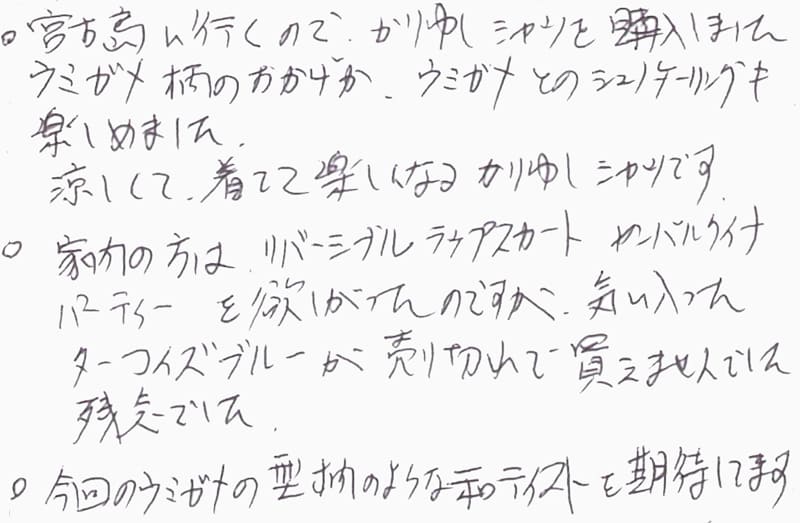 ○ 宮古島に行くので、かりゆしシャツを購入しました
ウミガメ柄のおかげか、ウミガメとのシュノーケーリングも
楽しめました。
涼しくて、着てて楽しくなるかりゆしシャツです。
○ 家内の方は、リバーシブルラップスカート ヤンバルクイナ
パーティー を欲しがったのですが、気に入った
ターコイズブルーが売り切れで買えませんでした
残念でした。
○ 今回のウミガメの型柄のような和テイストを期待してます